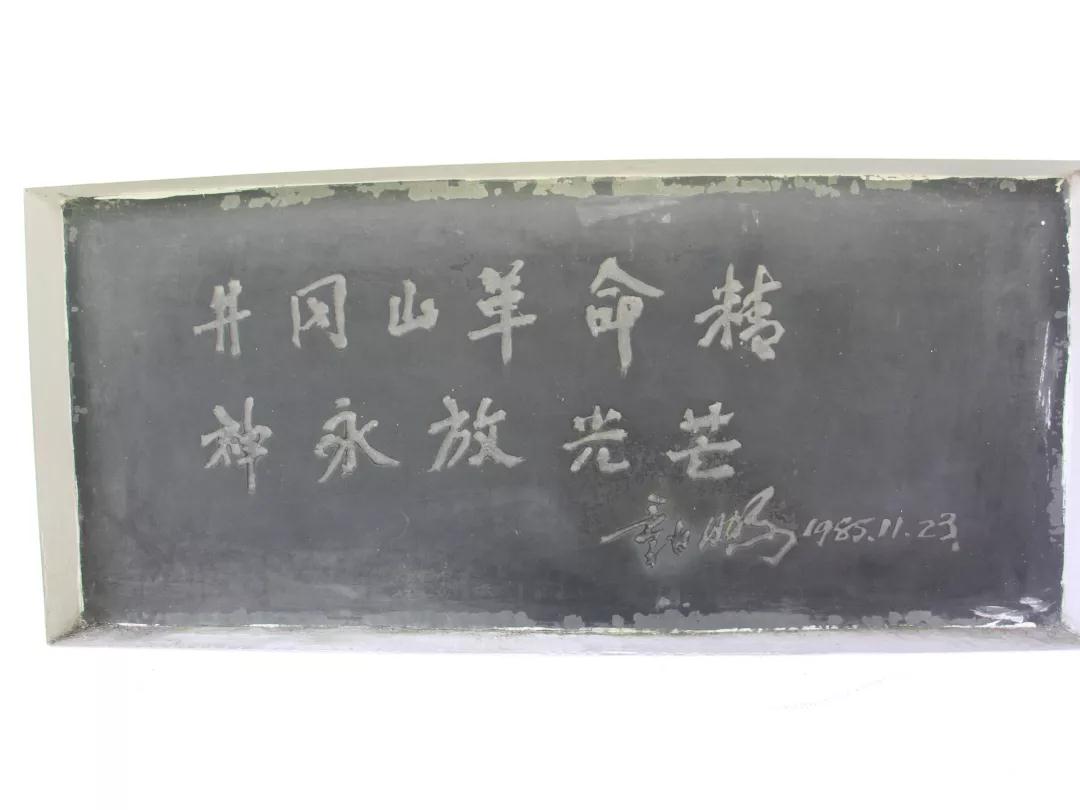 井冈山革命精
神永放光芒
鹏 1985.11.23